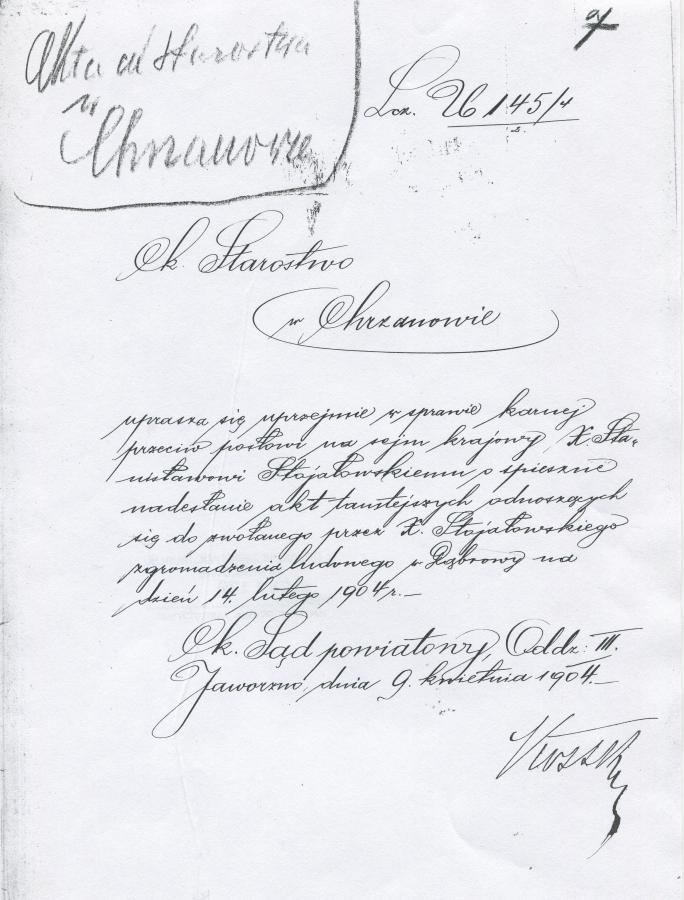 Akta c.k. Starostwa
w
Chrzanowie
Lcz. U 145/4
2
Ck. Starostwo
w Chrzanowie
uprasza się uprzejmie w sprawie karnej
przeciw posłowi na sejm krajowy, X. Sta-
nisławowi Stojałowskiemu o spieszne
nadesłanie akt tamtejszych odnoszących
się do zwołanego przez X. Stojałowskiego
zgromadzenia ludowego w Dąbrowy na
dzień 14. lutego 1904 r. —
Ck. Sąd powiatowy, Oddz: III.
Jaworzno, dnia 9. kwietnia 1904. —